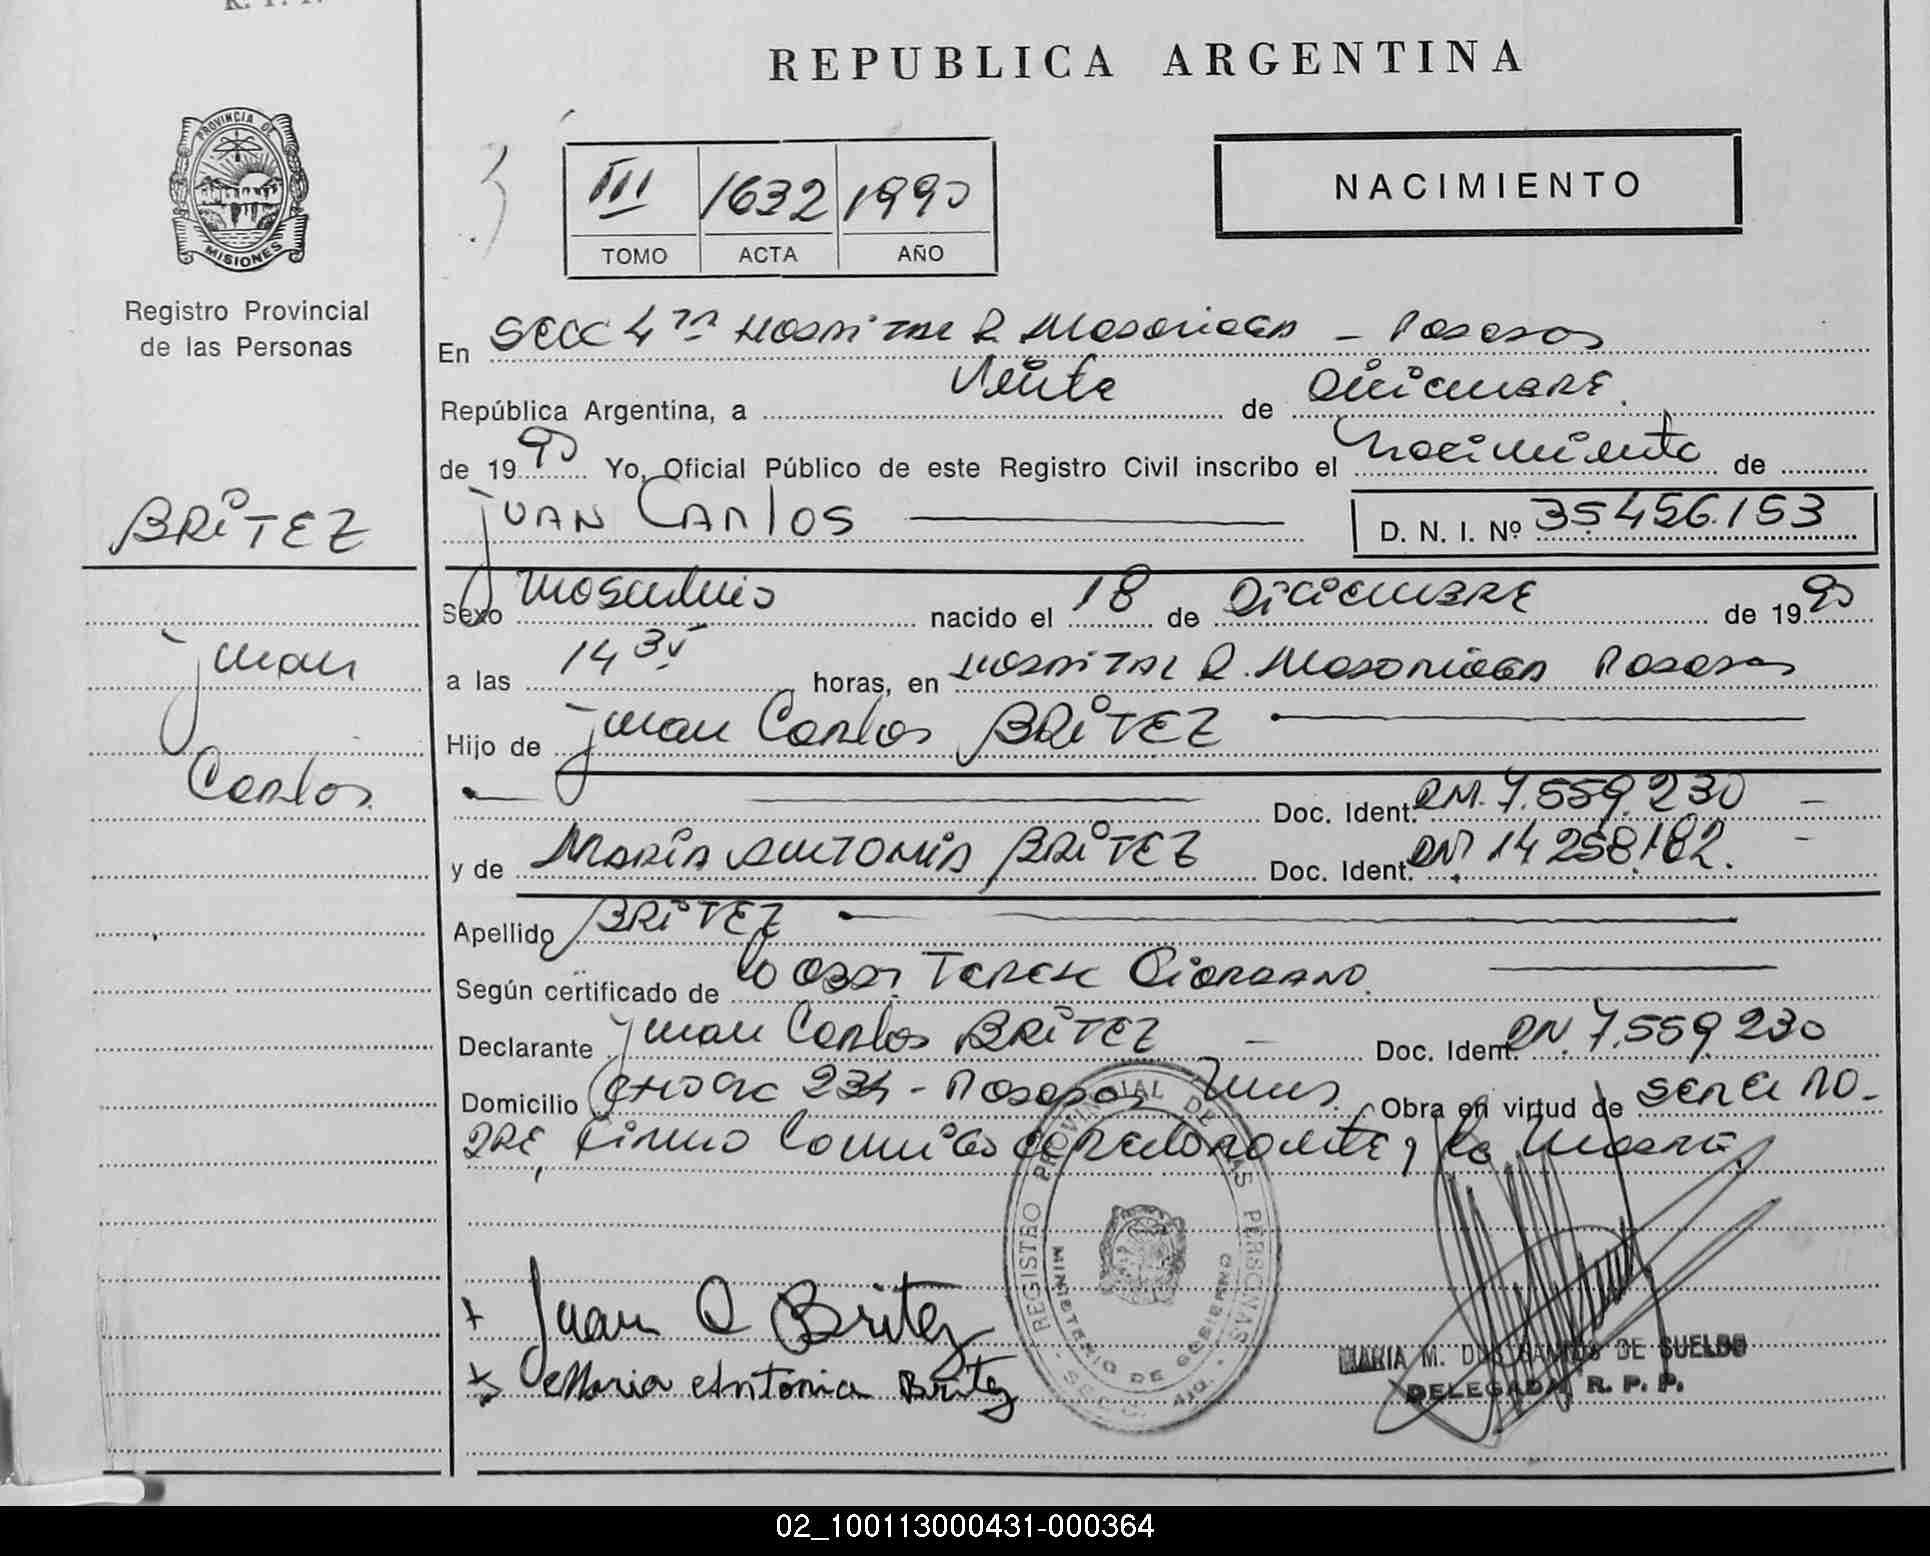 REPUBLICA ARGENTINA
PROVINCIA DE
MISIONES
Registro Provincial
de las Personas
III 1632 1990
TOMO ACTA AÑO
NACIMIENTO
En SECC 4ta HOSPITAL R. Madariaga - Posadas
República Argentina, a Veinte de Diciembre
de 1990 Yo, Oficial Público de este Registro Civil inscribo el Nacimiento de
BRITEZ
Juan Carlos
D. N. I. Nº 35456.153
Sexo Masculino nacido el 18 de Diciembre de 1990
Juan
a las 14 horas, en HOSPITAL R. Madariaga Posadas
Hijo de Juan Carlos BRITEZ
Carlos
Doc. Ident. DNI. 7.559.230
y de María Antonia BRITEZ Doc. Ident. DNI 14258.182.
Apellido BRITEZ
Según certificado de
Declarante Juan Carlos BRITEZ Doc. Ident. DNI. 7.559.230
Domicilio 234 - Posadas Mnes. Obra en virtud de ser el PA-
DRE, firma y la Madre.
REGISTRO PROVINCIAL DE LAS PERSONAS
MINISTERIO DE GOBIERNO
Juan C Britez
Maria Antonia Britez
MARIA M. DOS SANTOS DE SUELDO
DELEGADA R. P. P.
02_100113000431-000364